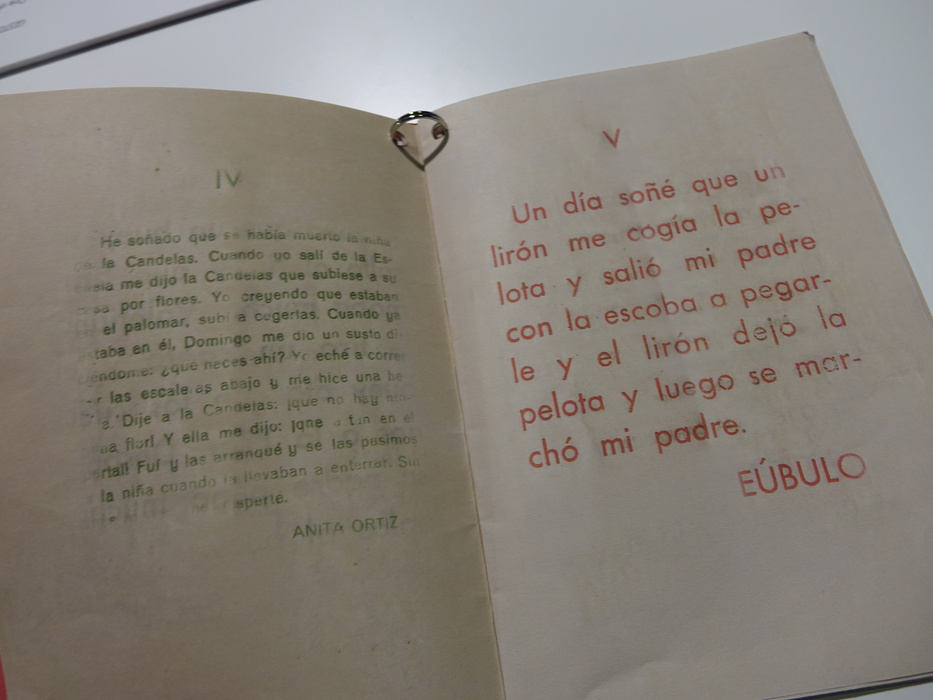 IV
He soñado que se había muerto la niña
la Candelas. Cuando yo salí de la Es-
me dijo la Candelas que subiese a su
por flores. Yo creyendo que estaban
el palomar, subí a cogerlas. Cuando ya
en él, Domingo me dio un susto di-
¿qué haces ahí? Yo eché a correr
las escaleras abajo y me hice una
Dije a la Candelas: ¡que no hay
flor! Y ella me dijo: ¡que en el
Fuí y las arranqué y se las pusimos
la niña cuando la llevaban a enterrar.
ANITA ORTIZ
V
Un día soñé que un
lirón me cogía la pe-
lota y salió mi padre
con la escoba a pegar-
le y el lirón dejó la
pelota y luego se mar-
chó mi padre.
EÚBULO